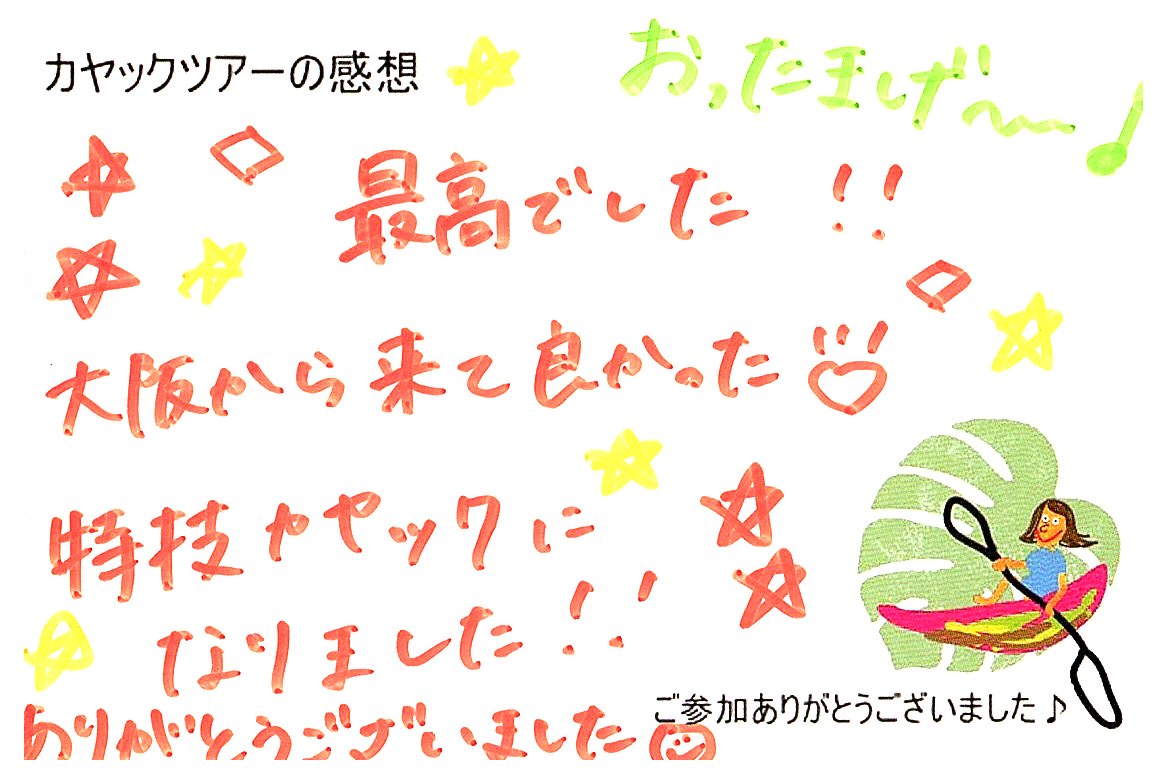 カヤックツアーの感想
おったまげ〜〜♪
最高でした!!
大阪から来て良かった♡
特技カヤックに
なりました!!
ありがとうございました
ご参加ありがとうございました♪